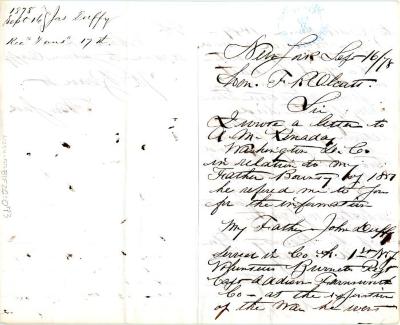 1878
Sept 16 Jas Duffy
Recd & ansd 17th
New York Sep 16/78
Hon. F. K. Olcott.
Sir
I wrote a letter to
A M Kenaday
Washington D. Co
in relation to my
Father Bounty
he refered me to you
for the information
My Father John Duffy
served in Co A. 1st N.Y.
Volunteers Burnett Regt
Capt Addison Farnsworth
Co - at the expiration
of the War he went